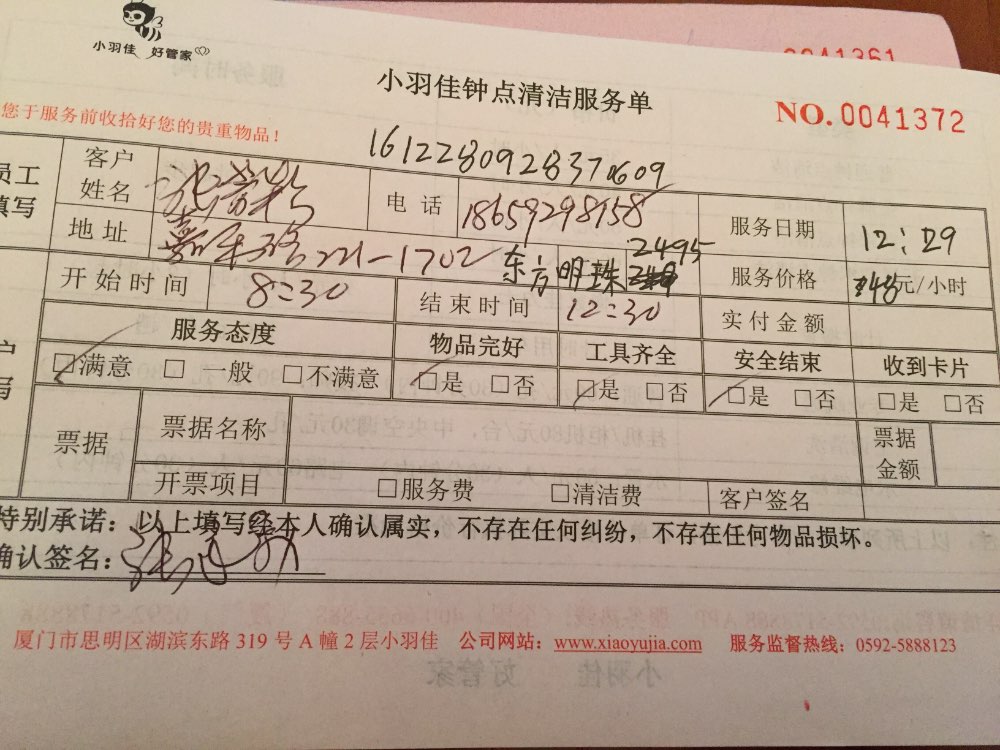 0041361
小羽佳 好管家
小羽佳钟点清洁服务单
NO.0041372
您于服务前收拾好您的贵重物品！
161228092837 0609
员工
填写
客户
姓名
电 话
18659298158
服务日期
12:29
地 址
嘉禾路221-1702 东方明珠 2495
服务价格
48元/小时
开始时间
8:30
结束时间
12:30
实付金额
服务态度
物品完好
工具齐全
安全结束
收到卡片
户
写
□满意 □ 一般 □不满意
□是 □否
□是 □否
□是 □否
□是 □否
票据
票据名称
票据
金额
开票项目
□服务费 □清洁费
客户签名
特别承诺：以上填写经本人确认属实，不存在任何纠纷，不存在任何物品损坏。
确认签名：
厦门市思明区湖滨东路 319 号 A 幢 2 层小羽佳 公司网站：www.xiaoyujia.com 服务监督热线：0592-5888123